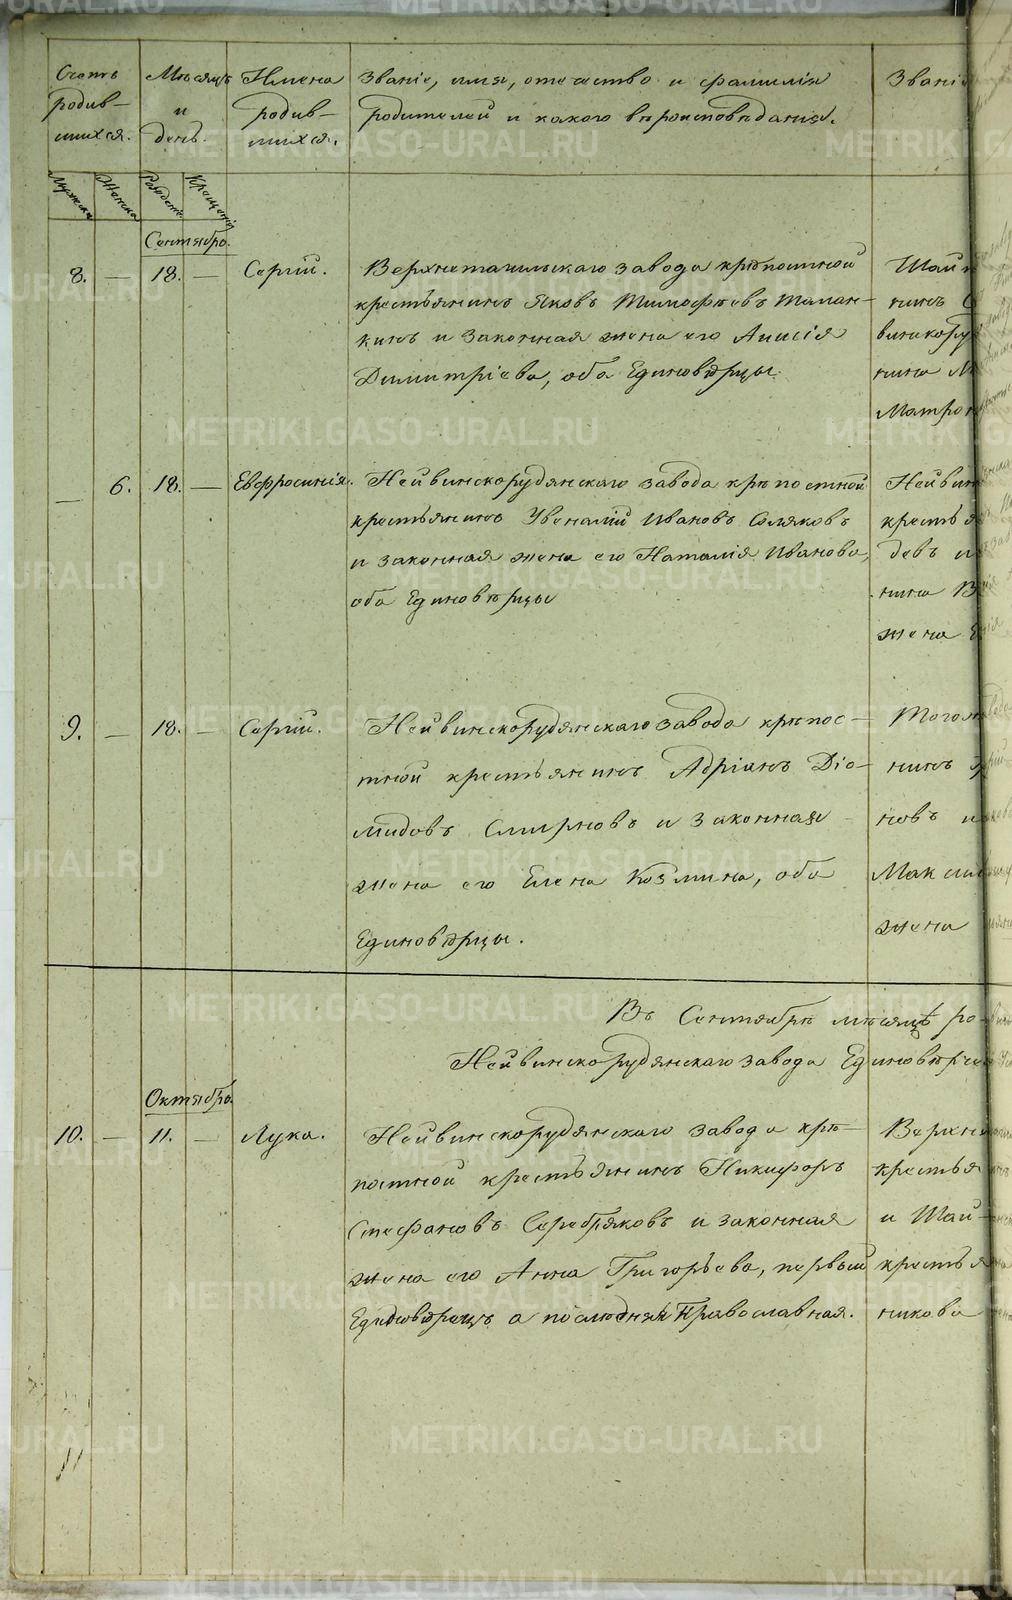 Счетъ родив-шихся.
Мѣсяцъ и день.
Имена родив-шихся.
Званіе, имя, отчество и фамилія
родителей и какого вѣроисповѣданія.
Званіе
Мужеска
Женска
Рожден.
Крещенія
Сентябрь.
8. — 18. — Сергій. Верхнетагильскаго завода крѣпостной Шай
крестьянинъ Яковъ Тимофѣевъ Таман- нинъ
кинъ и законная жена его Анисія
Димитріева, оба Единовѣрцы. нина
Матрон
— 6. 18. — Евфросинія. Нейвинскорудянскаго завода крѣпостной Нейвин
крестьянинъ Увеналій Ивановъ Соляковъ крестья
и законная жена его Наталія Иванова, девъ и
оба Единовѣрцы нина В
жена Е
9. — 18. — Сергій. Нейвинскорудянскаго завода крѣпос- Тогож
тной крестьянинъ Адріанъ Діо- нинъ
мидовъ Смирновъ и законная новъ и
жена его Елена Козмина, оба Макси
Единовѣрцы. жена
Въ Сентябрѣ мѣсяцѣ ро-
Нейвинскорудянскаго завода Единовѣрче
Октябрь.
10. — 11. — Лука. Нейвинскорудянскаго завода крѣ- Верхн
постной крестьянинъ Никифоръ крестья
Стефановъ Серебряковъ и законная и Шай-
жена его Анна Григорьева, первый крестья
Единовѣрецъ а послюдняя Православная. никова
11
METRIKI.GASO-URAL.RU